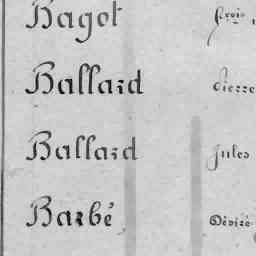 Bagot
Ballard Pierre
Ballard Jules
Barbé Désiré